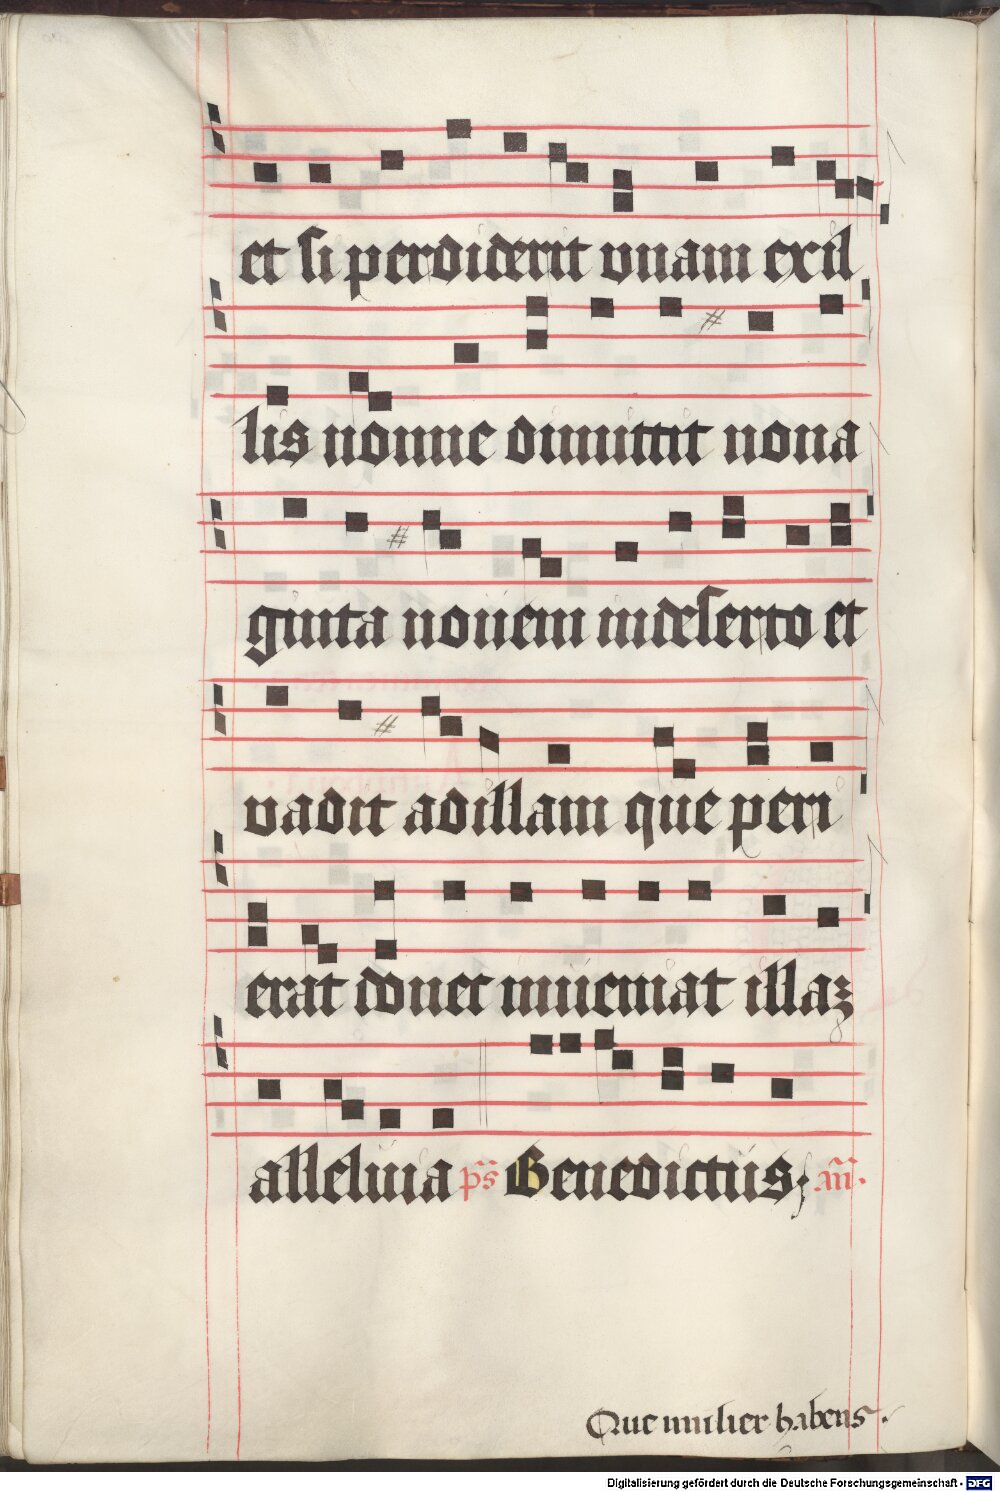 et si perdiderit vnam ex il
lis nonne dimittit nona
ginta nouem in deserto et
vadit ad illam que peri
erat donec inueniat illaꝫ
alleluia ps Benedictus; an.
Que mulier habens.
Digitalisierung gefördert durch die Deutsche Forschungsgemeinschaft - DFG